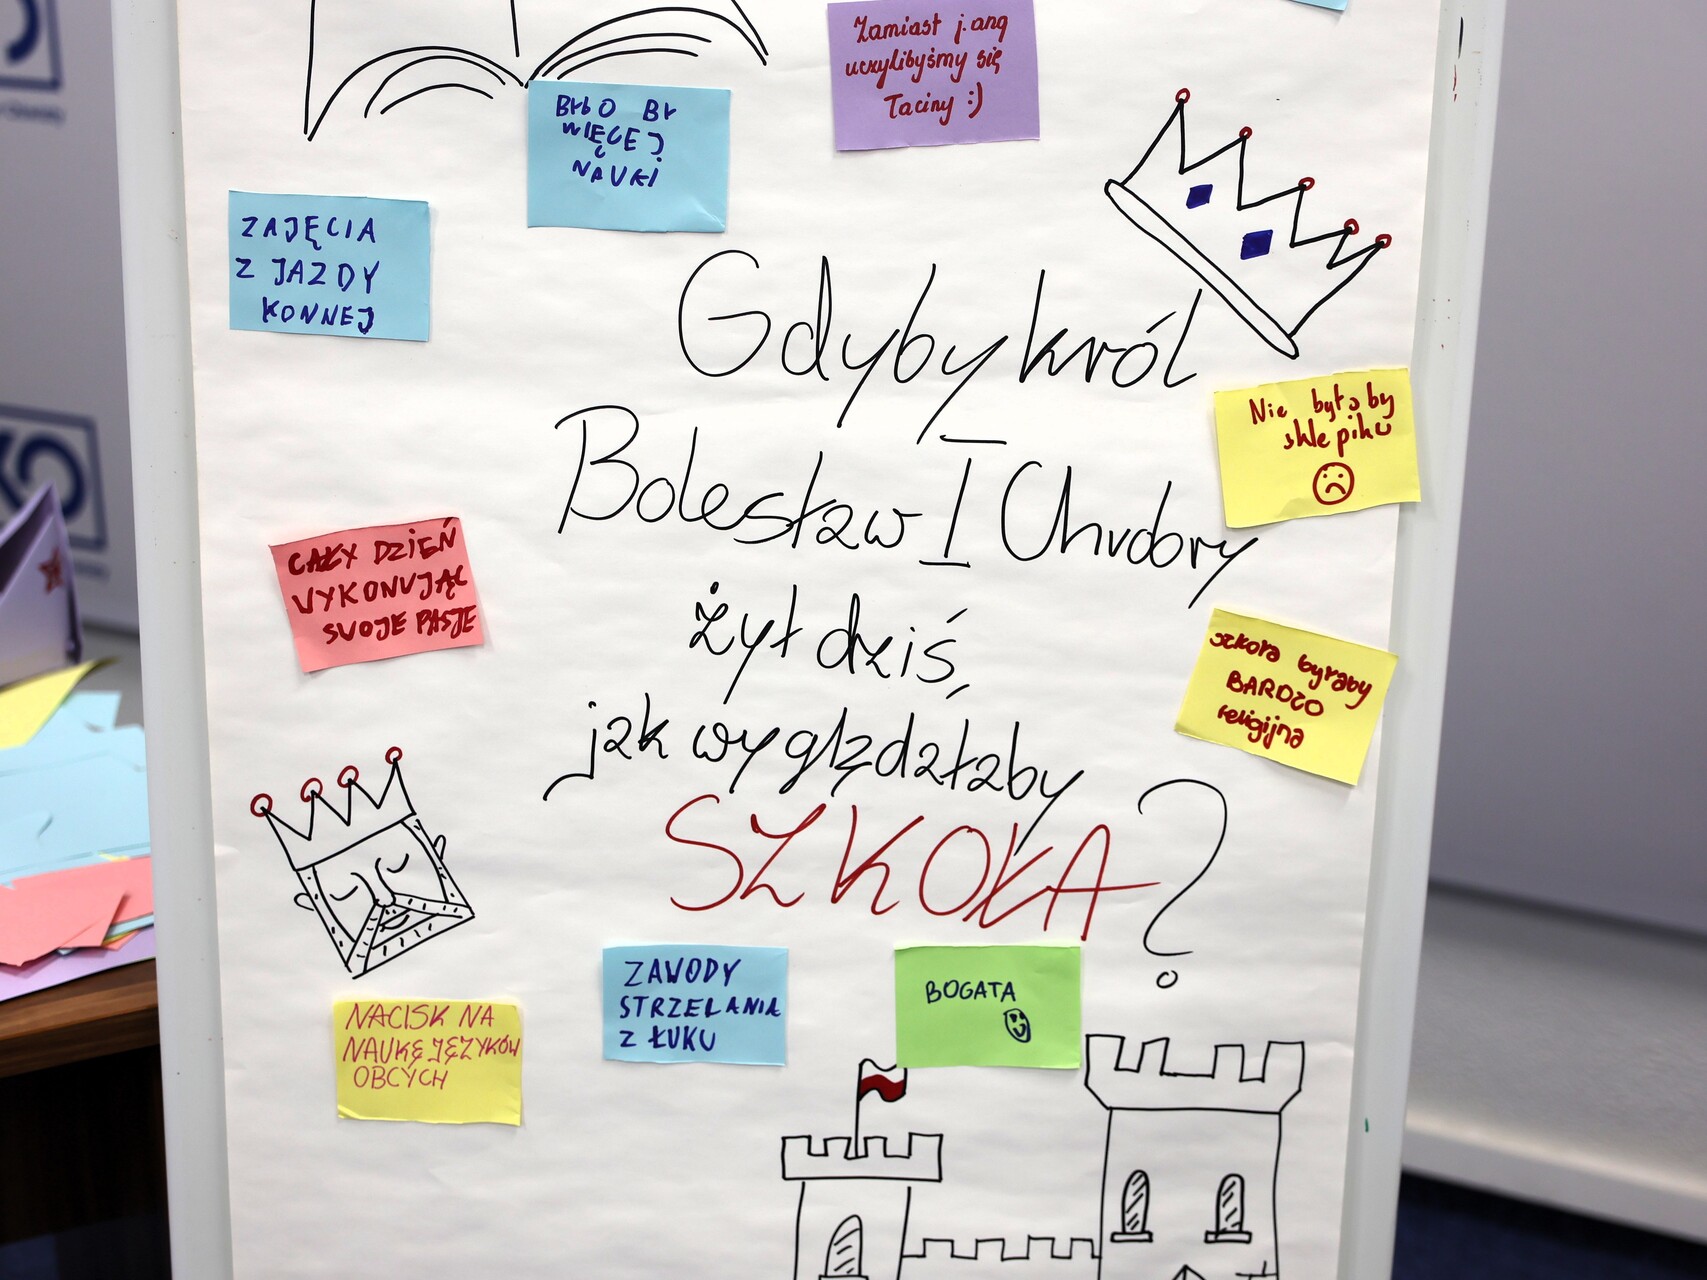 Zamiast j.ang
uczylibyśmy się
Łaciny :)
BYŁO BY
WIĘCEJ
NAUKI
ZAJĘCIA
Z JAZDY
KONNEJ
Gdyby król
Bolesław I Chrobry
żył dziś,
jak wyglądałaby
SZKOŁA?
Nie było by
sklepiku
CAŁY DZIEŃ
WYKONUJĄC
SWOJE PASJE
szkoła byłaby
BARDZO
religijna
NACISK NA
NAUKĘ JĘZYKÓW
OBCYCH
ZAWODY
STRZELANIA
Z ŁUKU
BOGATA